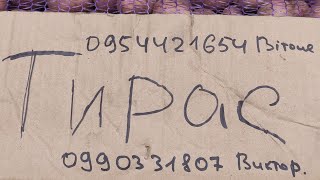 0954421654 Вітоше
Тирас
0990331807 Виктор.